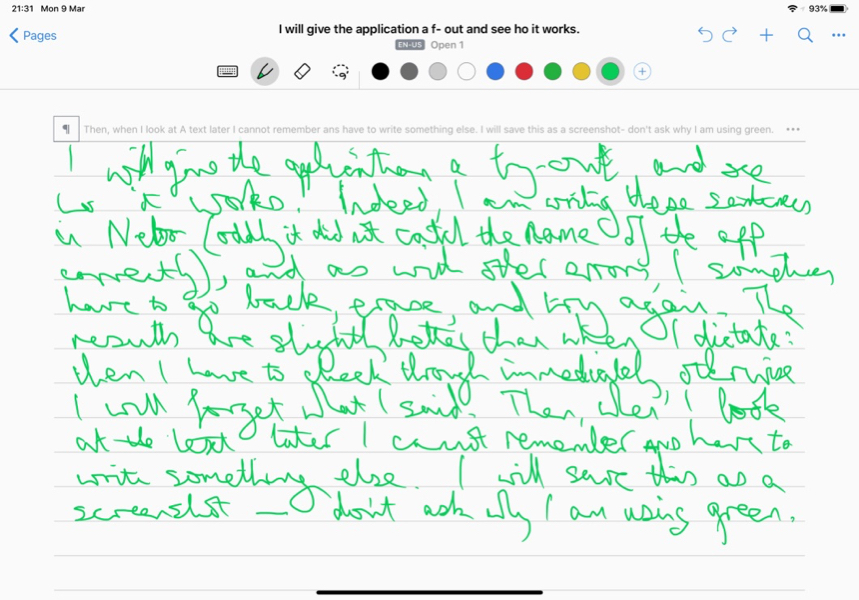 21:31 Mon 9 Mar
93%
Pages
I will give the application a f- out and see ho it works.
EN-US Open 1
¶ Then, when I look at A text later I cannot remember ans have to write something else. I will save this as a screenshot- don't ask why I am using green.
I will give the application a try-out and see
how it works. Indeed, I am writing these sentences
in Nebo (oddly it did not catch the name of the app
correctly), and as with other errors I sometimes
have to go back, erase, and try again. The
results are slightly better than when I dictate:
then I have to check through immediately, otherwise
I will forget what I said. Then, when I look
at the text later I cannot remember AND have to
write something else. I will save this as a
screenshot — don't ask why I am using green.